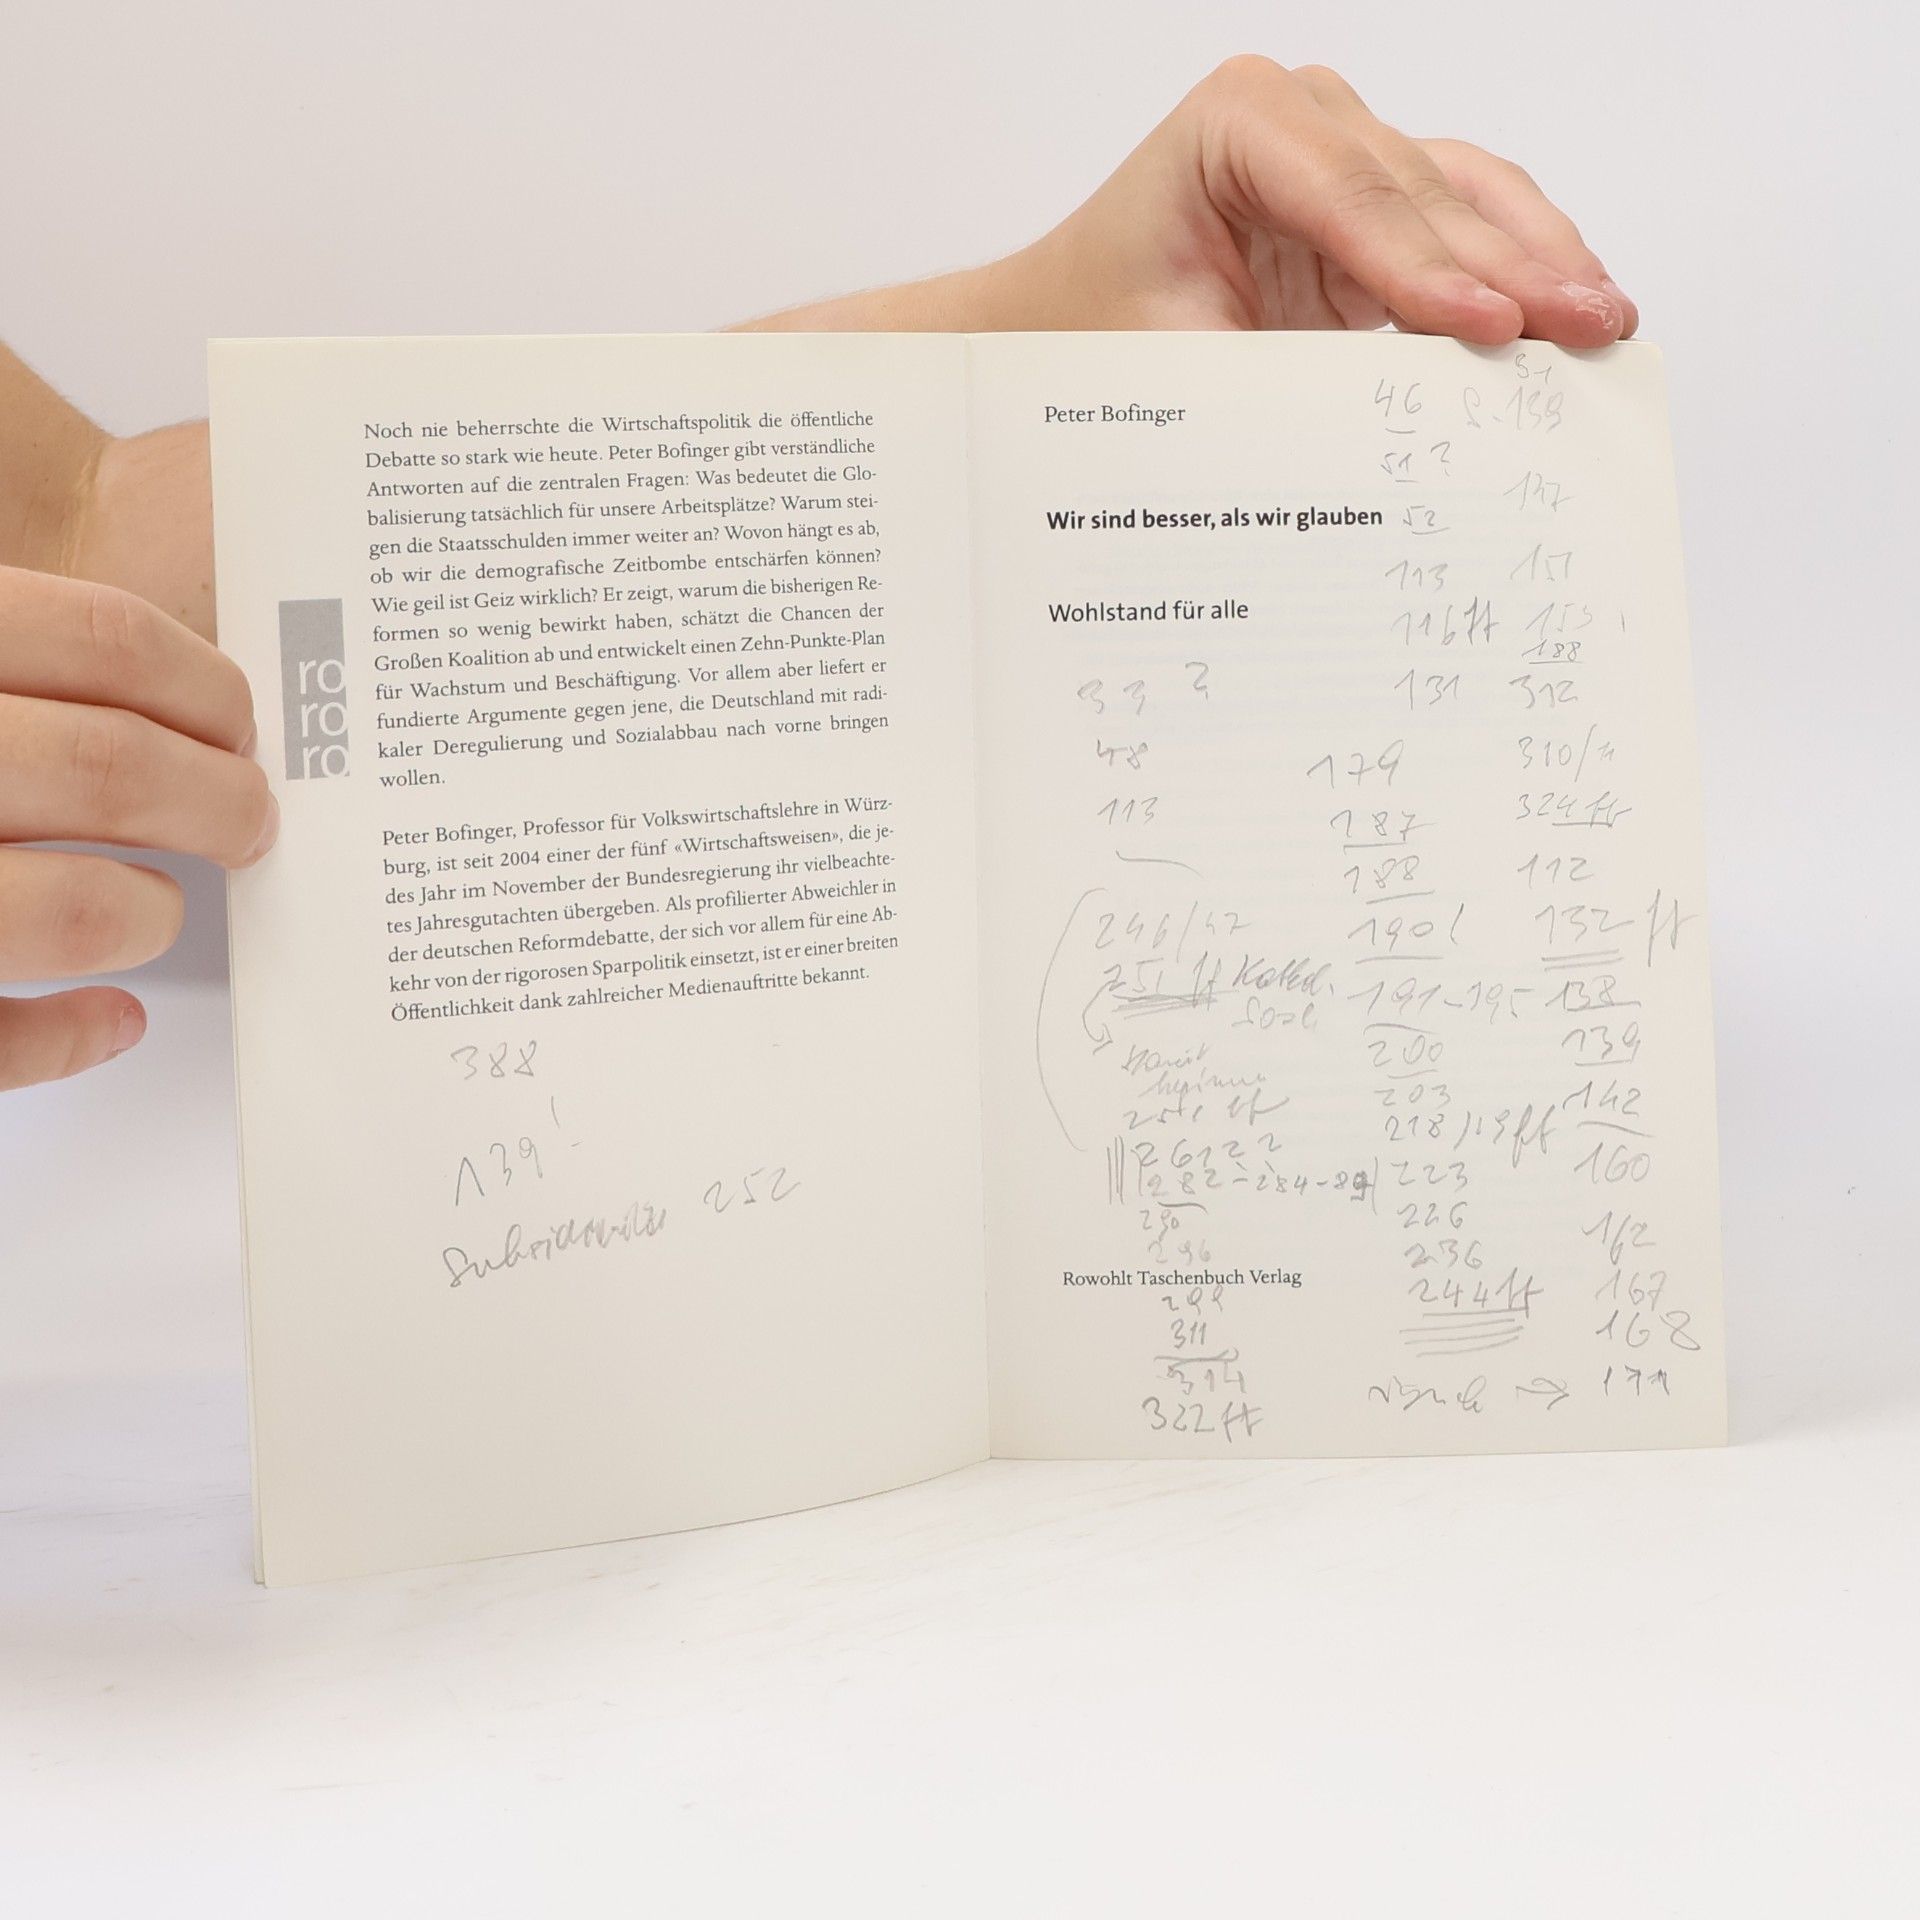 Noch nie beherrschte die Wirtschaftspolitik die öffentliche
Debatte so stark wie heute. Peter Bofinger gibt verständliche
Antworten auf die zentralen Fragen: Was bedeutet die Glo-
balisierung tatsächlich für unsere Arbeitsplätze? Warum stei-
gen die Staatsschulden immer weiter an? Wovon hängt es ab,
ob wir die demografische Zeitbombe entschärfen können?
Wie geil ist Geiz wirklich? Er zeigt, warum die bisherigen Re-
formen so wenig bewirkt haben, schätzt die Chancen der
Großen Koalition ab und entwickelt einen Zehn-Punkte-Plan
für Wachstum und Beschäftigung. Vor allem aber liefert er
fundierte Argumente gegen jene, die Deutschland mit radi-
kaler Deregulierung und Sozialabbau nach vorne bringen
wollen.
ro
ro
ro
Peter Bofinger, Professor für Volkswirtschaftslehre in Würz-
burg, ist seit 2004 einer der fünf «Wirtschaftsweisen», die je-
des Jahr im November der Bundesregierung ihr vielbeachte-
tes Jahresgutachten übergeben. Als profilierter Abweichler in
der deutschen Reformdebatte, der sich vor allem für eine Ab-
kehr von der rigorosen Sparpolitik einsetzt, ist er einer breiten
Öffentlichkeit dank zahlreicher Medienauftritte bekannt.
388
139!
252
Peter Bofinger
Wir sind besser, als wir glauben
Wohlstand für alle
33 ?
48
113
246/47
251 ff
290
296
Rowohlt Taschenbuch Verlag
299
311
314
322 ff
46
51 ?
52
113
116 ff
131
179
187
188
190!
191-195
200
203
218/19 ff
223
226
236
244 ff
S. 139
137
151
153
188
312
310/11
324 ff
112
132 ff
138
139
142
160
162
167
168
171